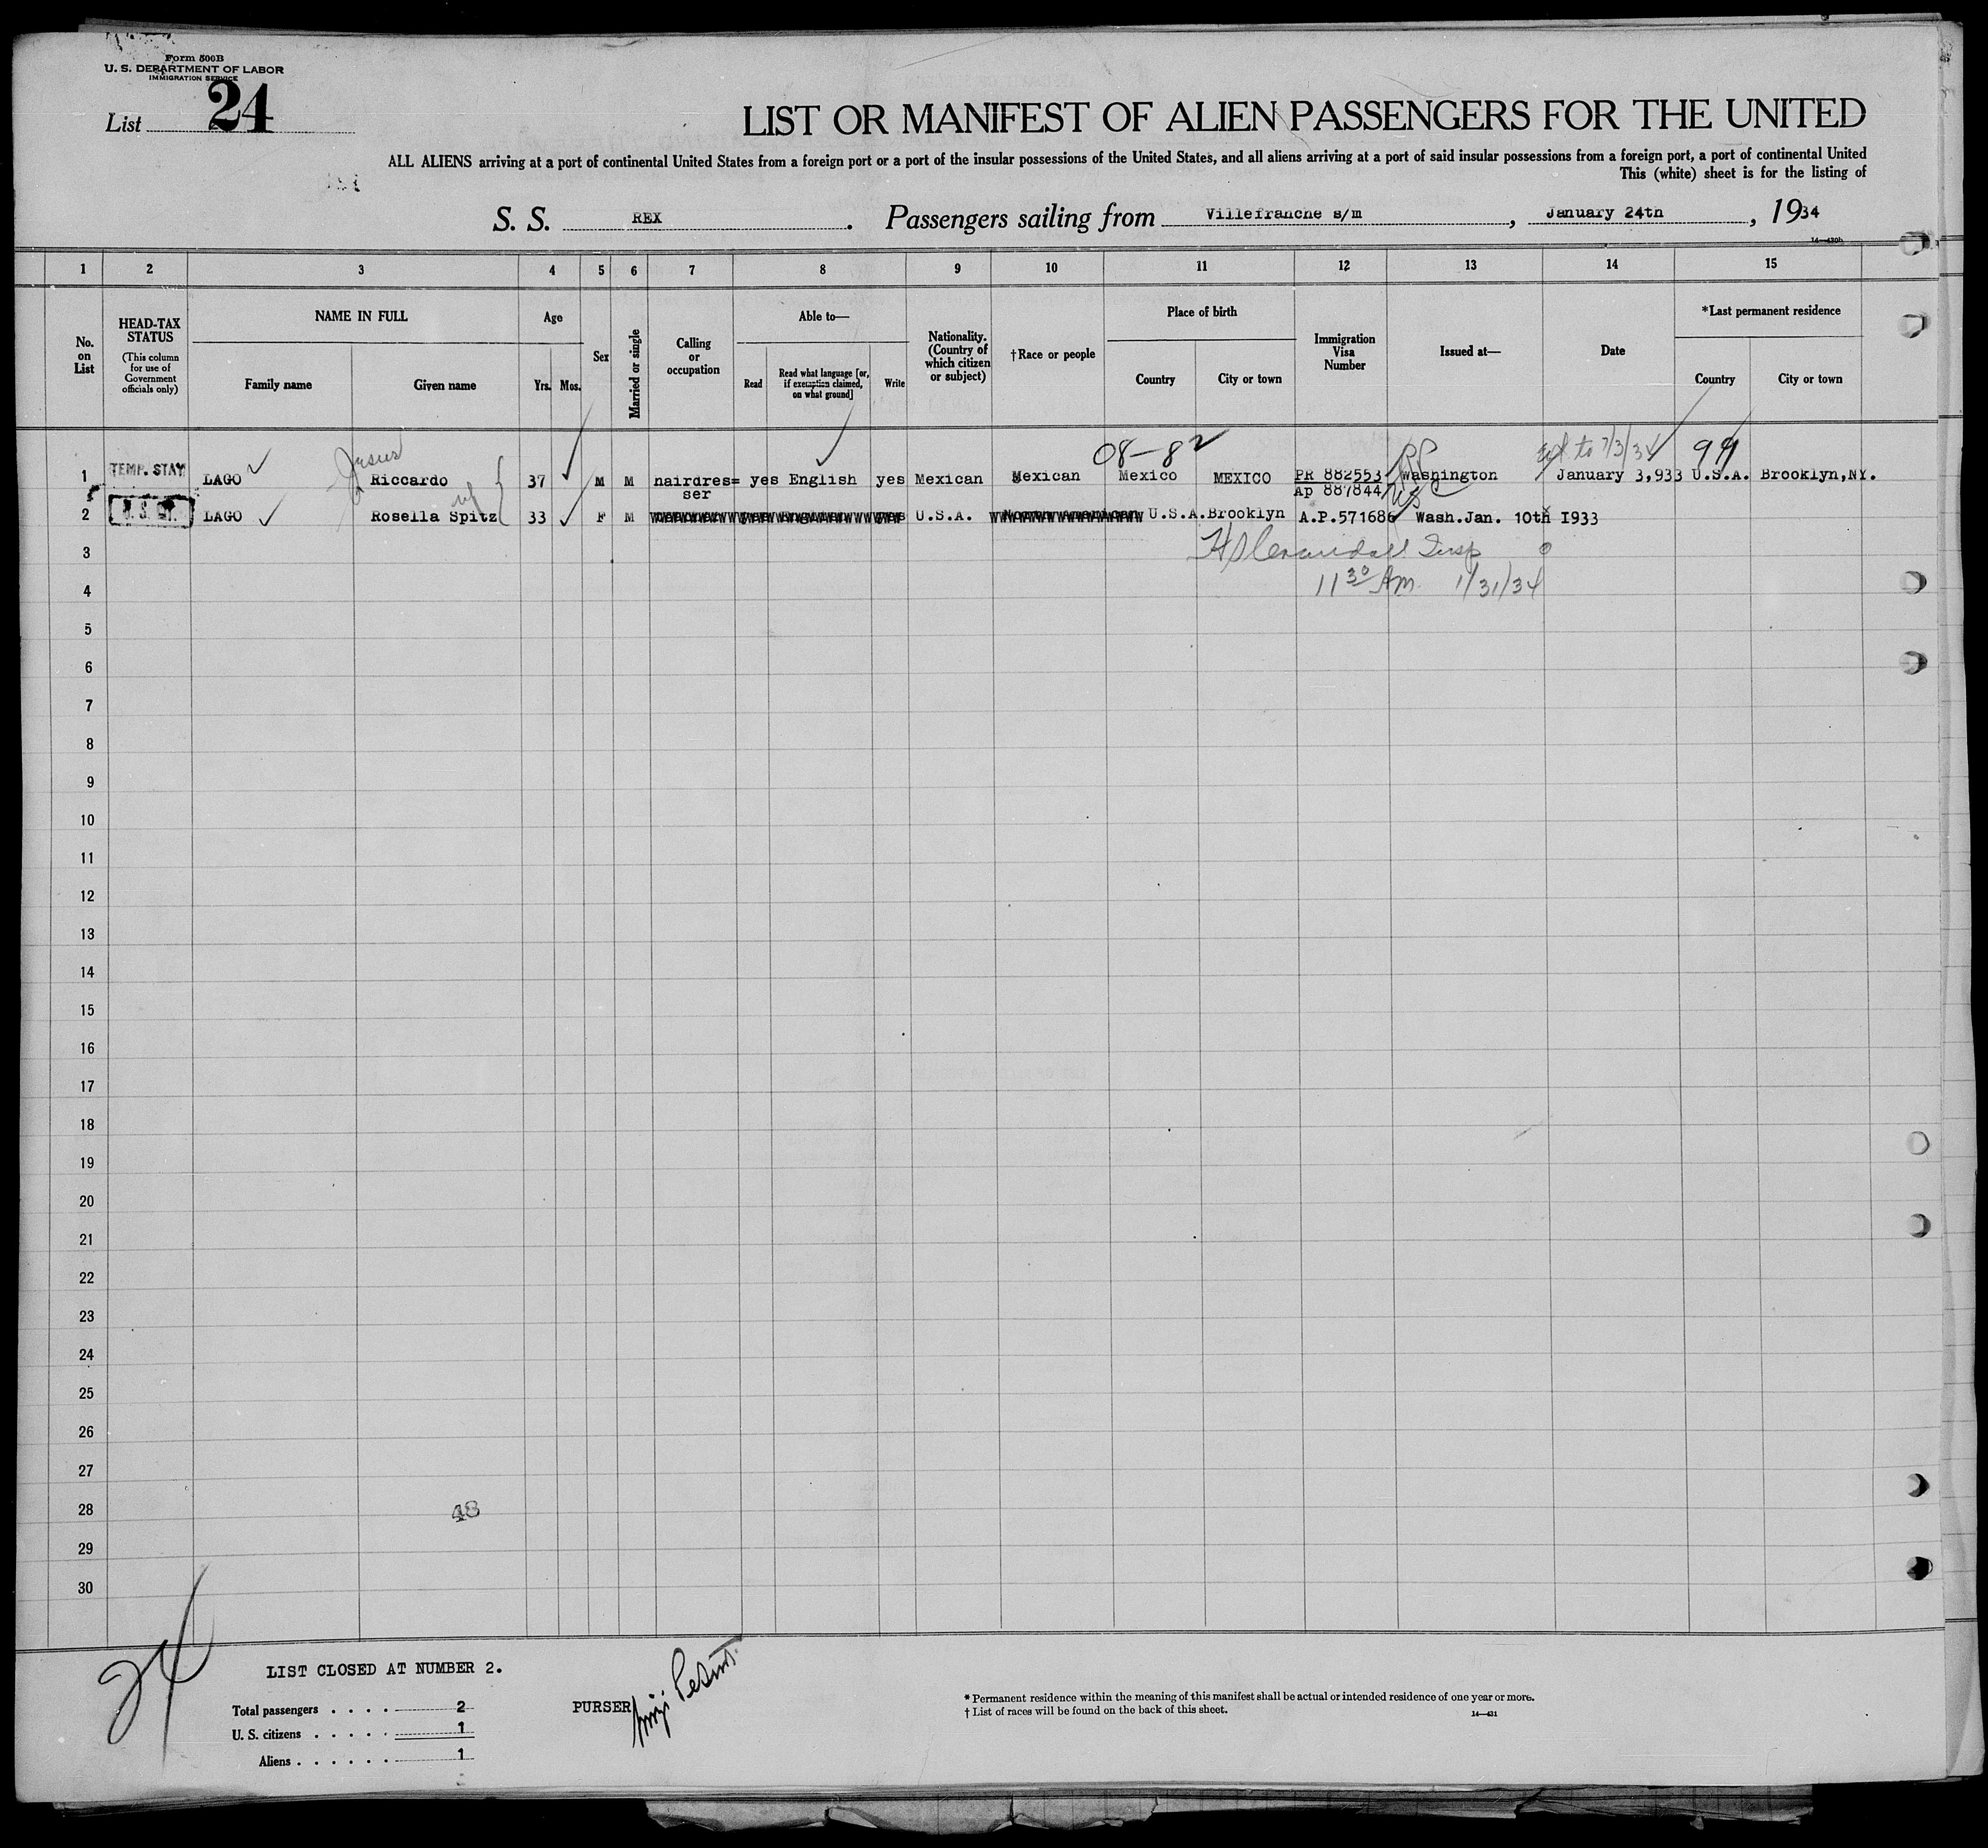 Form 500B
U. S. DEPARTMENT OF LABOR
IMMIGRATION SERVICE
List 24
LIST OR MANIFEST OF ALIEN PASSENGERS FOR THE UNITED
ALL ALIENS arriving at a port of continental United States from a foreign port or a port of the insular possessions of the United States, and all aliens arriving at a port of said insular possessions from a foreign port, a port of continental United
This (white) sheet is for the listing of
S. S. REX. Passengers sailing from Villefranche s/m, January 24th, 1934
14—430b
1 2 3 4 5 6 7 8 9 10 11 12 13 14 15
No. on List
HEAD-TAX STATUS (This column for use of Government officials only)
NAME IN FULL
Family name Given name
Age
Yrs. Mos.
Sex
Married or single
Calling or occupation
Able to—
Read Read what language [or, if exemption claimed, on what ground] Write
Nationality. (Country of which citizen or subject)
†Race or people
Place of birth
Country City or town
Immigration Visa Number
Issued at—
Date
*Last permanent residence
Country City or town
Jesus 08-82 to 7/3/34 99
1 TEMP. STAY LAGO Riccardo 37 M M hairdres= yes English yes Mexican Mexican Mexico MEXICO PR 882553 Washington January 3,933 U.S.A. Brooklyn,NY.
ser Ap 887844
2 LAGO Rosella Spitz 33 F M U.S.A. U.S.A. Brooklyn A.P.571686 Wash.Jan. 10th I933
3 Insp
4 11 30 Am. 1/31/34
5
6
7
8
9
10
11
12
13
14
15
16
17
18
19
20
21
22
23
24
25
26
27
28 48
29
30
24
LIST CLOSED AT NUMBER 2.
Total passengers . . . . 2
U. S. citizens . . . . . 1
Aliens . . . . . . 1
PURSER
* Permanent residence within the meaning of this manifest shall be actual or intended residence of one year or more.
† List of races will be found on the back of this sheet.
14—431